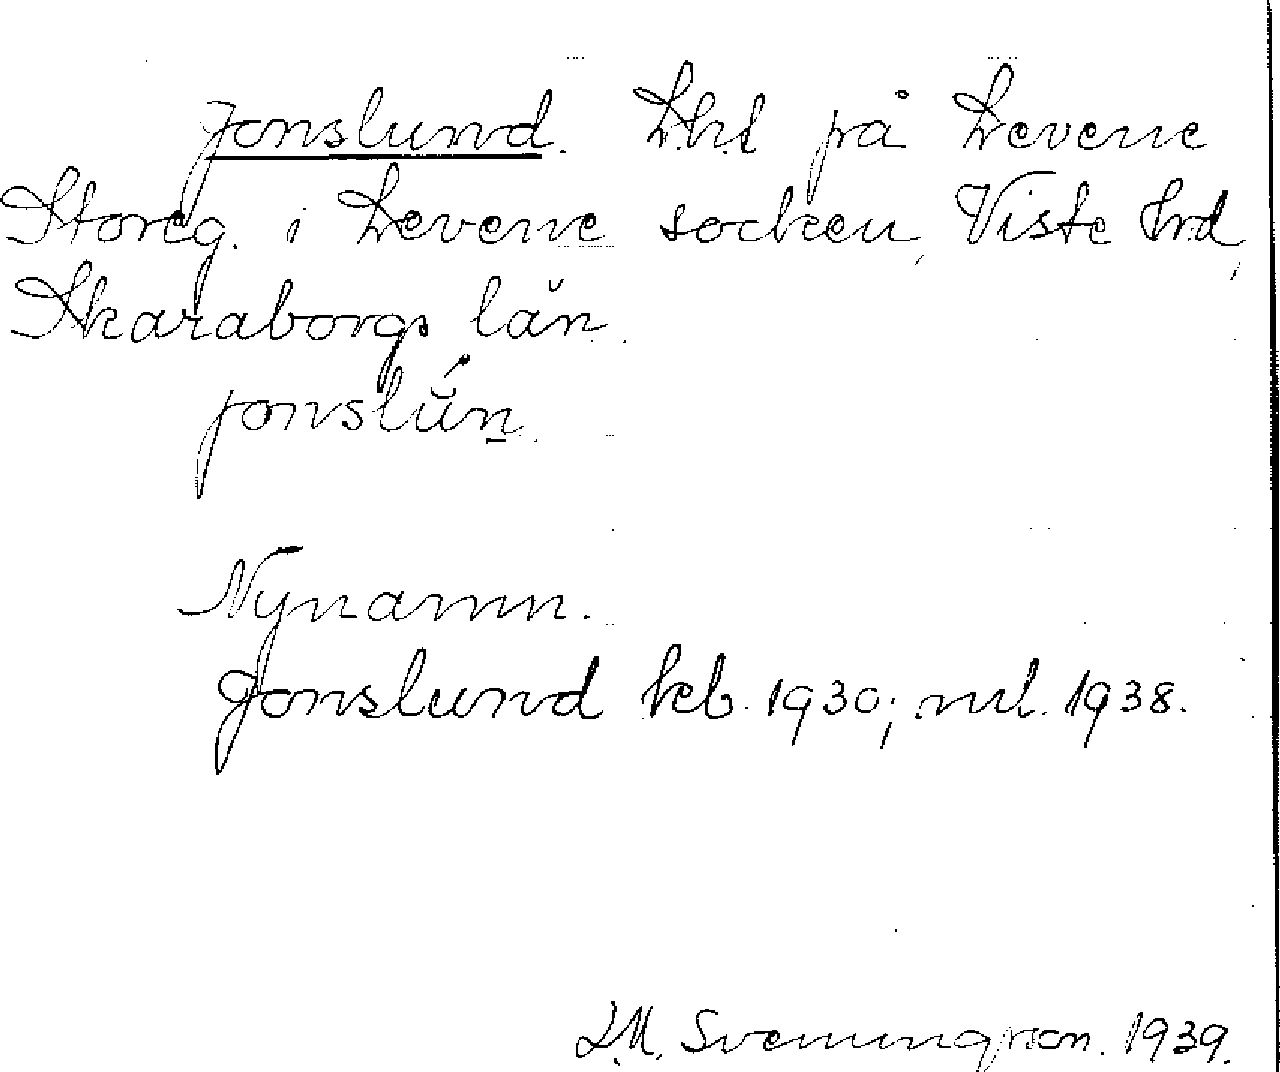 Jonslund. Lht på Levene
Storeg. i Levene socken, Viste hrd,
Skaraborgs län.
jonslŭ́n̲.
Nynamn.
Jonslund kb. 1930; ml. 1938.
Svenungsson. 1939.